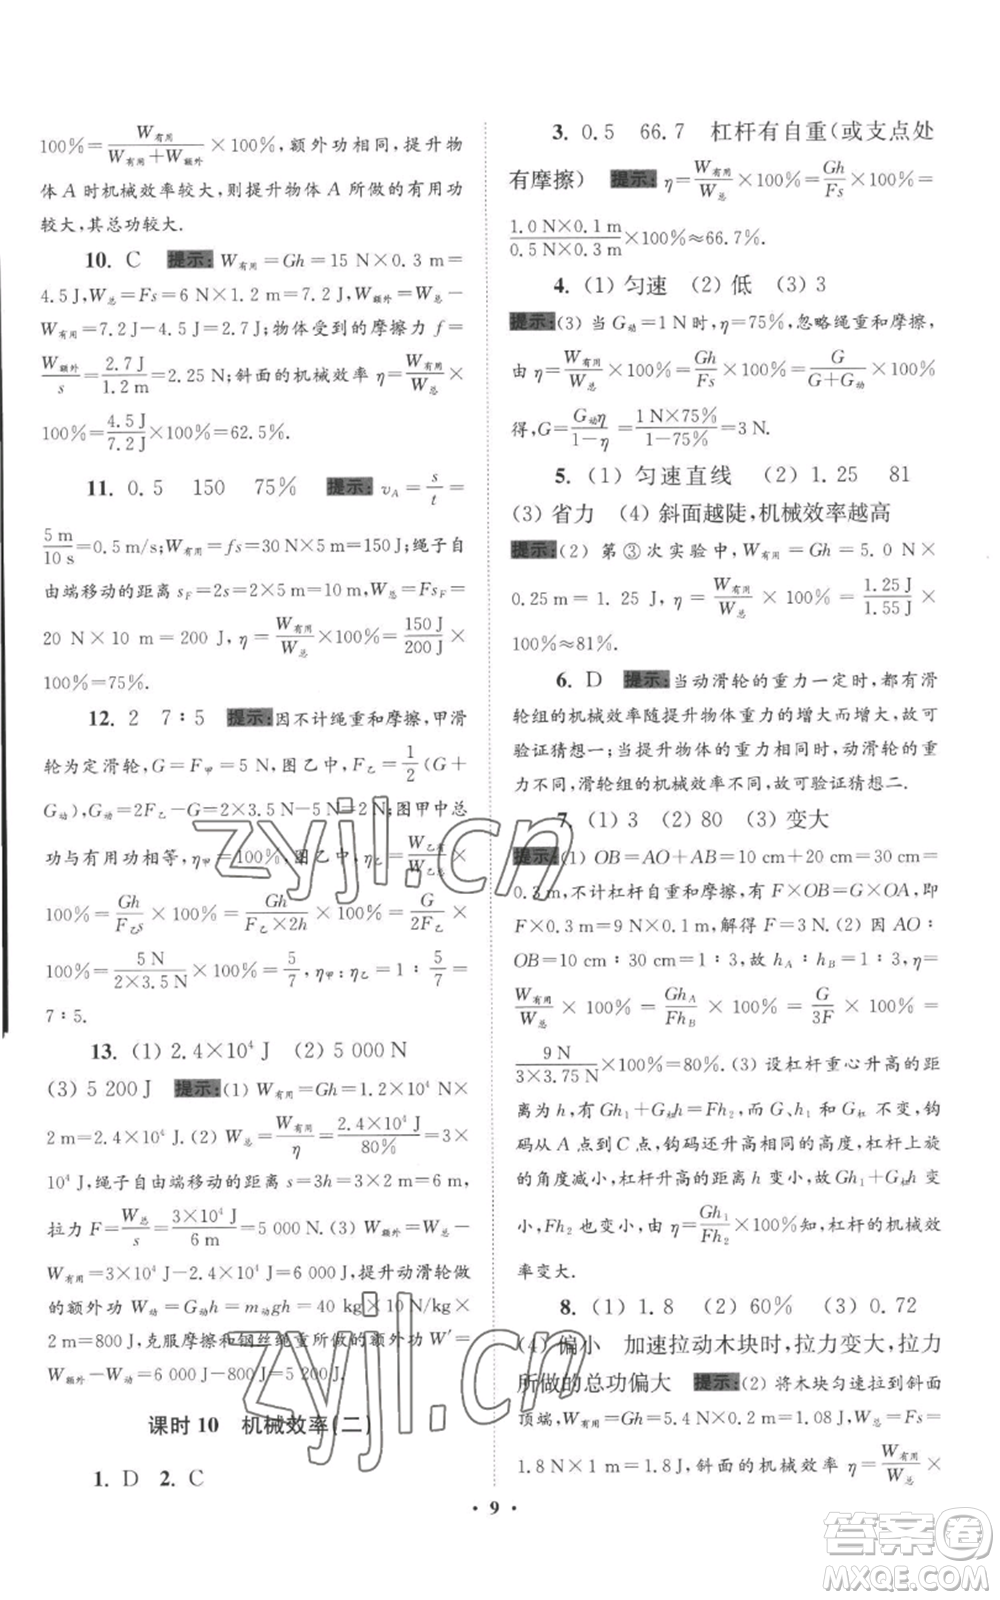 100%=W有用/(W有用+W额外)×100%,额外功相同,提升物
体 A 时机械效率较大,则提升物体 A 所做的有用功
较大,其总功较大.
10. C 提示:W有用=Gh=15 N×0.3 m=
4.5 J,W总=Fs=6 N×1.2 m=7.2 J,W额外=W总-
W有用=7.2 J-4.5 J=2.7 J;物体受到的摩擦力 f=
W额外/s=2.7 J/1.2 m=2.25 N;斜面的机械效率 η=W有用/W总×
100%=4.5 J/7.2 J×100%=62.5%.
11. 0.5 150 75% 提示:vA=s/t=
5 m/10 s=0.5 m/s;W有用=fs=30 N×5 m=150 J;绳子自
由端移动的距离 sF=2s=2×5 m=10 m,W总=FsF=
20 N×10 m=200 J,η=W有用/W总×100%=150 J/200 J×
100%=75%.
12. 2 7∶5 提示:因不计绳重和摩擦,甲滑
轮为定滑轮,G=F甲=5 N,图乙中,F乙=1/2(G+
G动),G动=2F乙-G=2×3.5 N-5 N=2 N;图甲中总
功与有用功相等,η甲=100%,图乙中,η乙=W乙有/W乙总×
100%=Gh/F乙s×100%=Gh/(F乙×2h)×100%=G/2F乙×
100%=5 N/(2×3.5 N)×100%=5/7,η甲∶η乙=1∶5/7=
7∶5.
13. (1) 2.4×10⁴ J (2) 5 000 N
(3) 5 200 J 提示:(1) W有用=Gh=1.2×10⁴ N×
2 m=2.4×10⁴ J.(2) W总=W有用/η=2.4×10⁴ J/80%=3×
10⁴ J,绳子自由端移动的距离 s=3h=3×2 m=6 m,
拉力 F=W总/s=3×10⁴ J/6 m=5 000 N.(3) W额外=W总-
W有用=3×10⁴ J-2.4×10⁴ J=6 000 J,提升动滑轮做
的额外功 W动=G动h=m动gh=40 kg×10 N/kg×
2 m=800 J,克服摩擦和钢丝绳重所做的额外功 W′=
W额外-W动=6 000 J-800 J=5 200 J.
课时 10 机械效率(二)
1. D 2. C
3. 0.5 66.7 杠杆有自重(或支点处
有摩擦) 提示:η=W有用/W总×100%=Gh/Fs×100%=
1.0 N×0.1 m/(0.5 N×0.3 m)×100%≈66.7%.
4. (1) 匀速 (2) 低 (3) 3
提示:(3) 当 G动=1 N 时,η=75%,忽略绳重和摩擦,
由 η=W有用/W总×100%=Gh/Fs×100%=G/(G+G动)×100%
得,G=G动η/(1-η)=1 N×75%/(1-75%)=3 N.
5. (1) 匀速直线 (2) 1.25 81
(3) 省力 (4) 斜面越陡,机械效率越高
提示:(2) 第③次实验中,W有用=Gh=5.0 N×
0.25 m=1.25 J,η=W有用/W总×100%=1.25 J/1.55 J×
100%≈81%.
6. D 提示:当动滑轮的重力一定时,都有滑
轮组的机械效率随提升物体重力的增大而增大,故可
验证猜想一;当提升物体的重力相同时,动滑轮的重
力不同,滑轮组的机械效率不同,故可验证猜想二.
7. (1) 3 (2) 80 (3) 变大
提示:(1) OB=AO+AB=10 cm+20 cm=30 cm=
0.3 m,不计杠杆自重和摩擦,有 F×OB=G×OA,即
F×0.3 m=9 N×0.1 m,解得 F=3 N.(2) 因 AO∶
OB=10 cm∶30 cm=1∶3,故 hA∶hB=1∶3,η=
W有用/W总×100%=GhA/FhB×100%=G/3F×100%=
9 N/(3×3.75 N)×100%=80%.(3) 设杠杆重心升高的距
离为 h,有 Gh1+G杠h=Fh2,G、h1 和 G杠 不变,钩
码从 A 点到 C 点,钩码还升高相同的高度,杠杆上旋
的角度变小,杠杆升高的距离 h 变小,故 Gh1+G杠h 变
小,Fh2 也变小,由 η=Gh1/Fh2×100%知,杠杆的机械效
率变大.
8. (1) 1.8 (2) 60% (3) 0.72
(4) 偏小 加速拉动木块时,拉力变大,拉力
所做的总功偏大 提示:(2) 将木块匀速拉到斜面
顶端,W有用=Gh=5.4 N×0.2 m=1.08 J,W总=Fs=
1.8 N×1 m=1.8 J,斜面的机械效率 η=W有用/W总×
· 9 ·
zyjl.cn
zyjl.cn
答案圈
MXQE.COM